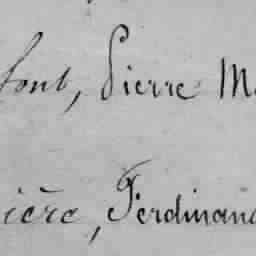 font, Pierre M
ière, Ferdinand